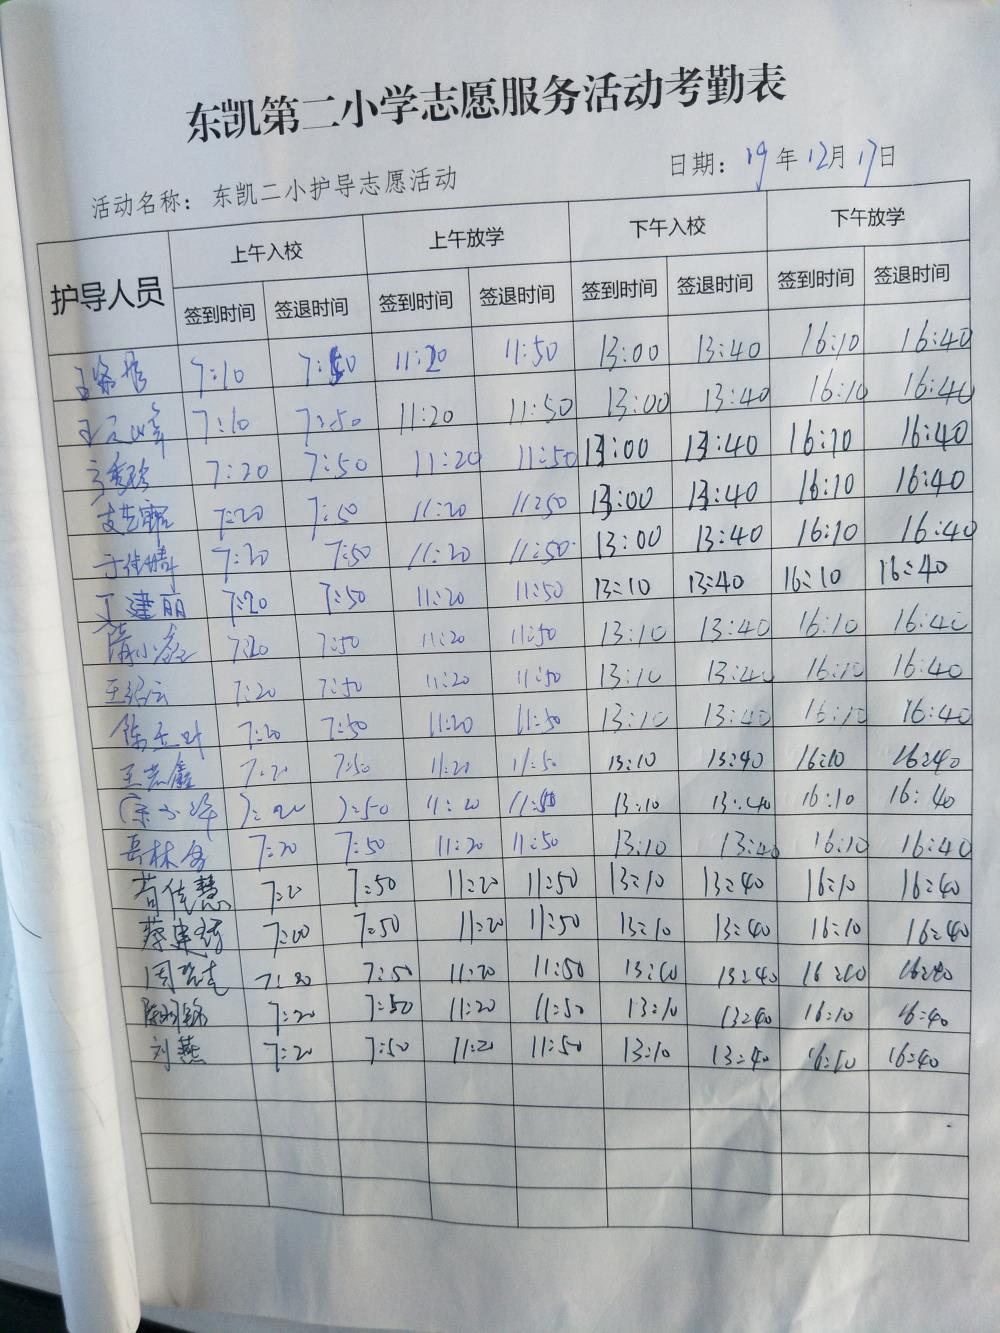 东凯第二小学志愿服务活动考勤表
活动名称：东凯二小护导志愿活动 日期：19年12月17日
护导人员 上午入校 上午放学 下午入校 下午放学
签到时间 签退时间 签到时间 签退时间 签到时间 签退时间 签到时间 签退时间
7:10 7:50 11:20 11:50 13:00 13:40 16:10 16:40
7:10 7:50 11:20 11:50 13:00 13:40 16:10 16:40
7:20 7:50 11:20 11:50 13:00 13:40 16:10 16:40
7:20 7:50 11:20 11:50 13:00 13:40 16:10 16:40
7:20 7:50 11:20 11:50 13:00 13:40 16:10 16:40
丁建丽 7:20 7:50 11:20 11:50 13:10 13:40 16:10 16:40
7:20 7:50 11:20 11:50 13:10 13:40 16:10 16:40
王绍云 7:20 7:50 11:20 11:50 13:10 13:40 16:10 16:40
陈玉叶 7:20 7:50 11:20 11:50 13:10 13:40 16:10 16:40
王志鑫 7:20 7:50 11:20 11:50 13:10 13:40 16:10 16:40
7:20 7:50 11:20 11:50 13:10 13:40 16:10 16:40
7:20 7:50 11:20 11:50 13:10 13:40 16:10 16:40
苟佳慧 7:20 7:50 11:20 11:50 13:10 13:40 16:10 16:40
7:00 7:50 11:20 11:50 13:10 13:40 16:10 16:40
7:20 7:50 11:20 11:50 13:10 13:40 16:10 16:40
7:20 7:50 11:20 11:50 13:10 13:40 16:10 16:40
刘燕 7:20 7:50 11:20 11:50 13:10 13:40 16:10 16:40